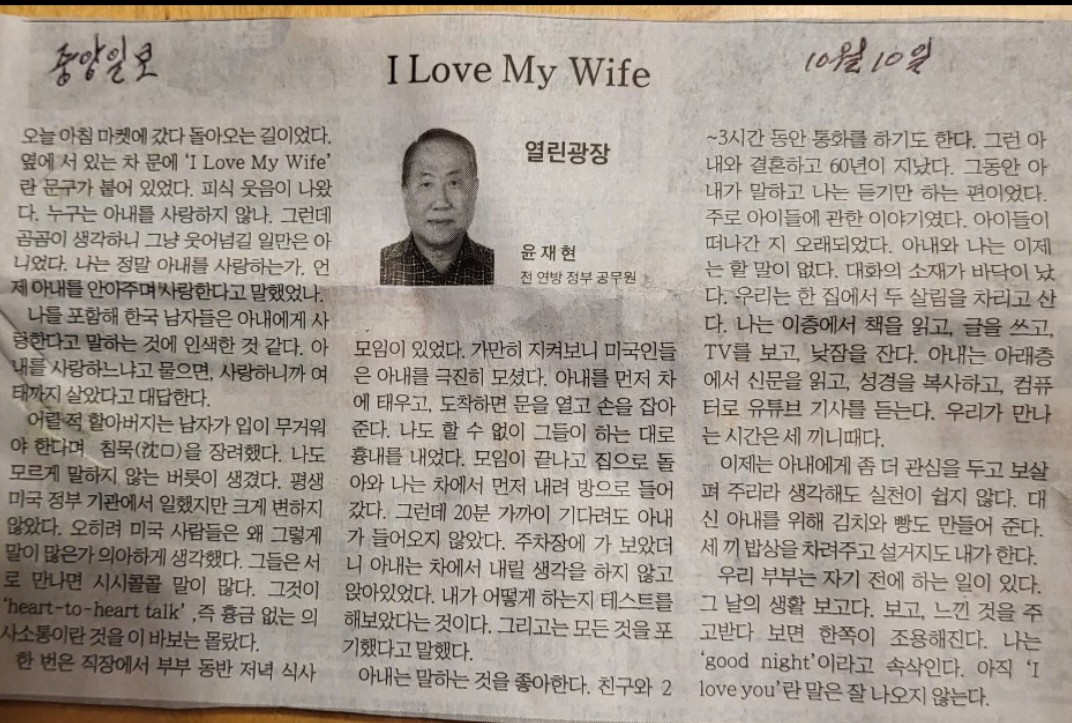 중앙일보
10월 10일
I Love My Wife
열린광장
윤재현
전 연방 정부 공무원
오늘 아침 마켓에 갔다 돌아오는 길이었다.
옆에 서 있는 차 문에 ‘I Love My Wife’
란 문구가 붙어 있었다. 피식 웃음이 나왔
다. 누구는 아내를 사랑하지 않나. 그런데
곰곰이 생각하니 그냥 웃어넘길 일만은 아
니었다. 나는 정말 아내를 사랑하는가. 언
제 아내를 안아주며 사랑한다고 말했었나.
나를 포함해 한국 남자들은 아내에게 사
랑한다고 말하는 것에 인색한 것 같다. 아
내를 사랑하느냐고 물으면, 사랑하니까 여
태까지 살았다고 대답한다.
어릴 적 할아버지는 남자가 입이 무거워
야 한다며 침묵(沈口)을 장려했다. 나도
모르게 말하지 않는 버릇이 생겼다. 평생
미국 정부 기관에서 일했지만 크게 변하지
않았다. 오히려 미국 사람들은 왜 그렇게
말이 많은가 의아하게 생각했다. 그들은 서
로 만나면 시시콜콜 말이 많다. 그것이
‘heart-to-heart talk’,즉 흉금 없는 의
사소통이란 것을 이 바보는 몰랐다.
한 번은 직장에서 부부 동반 저녁 식사
모임이 있었다. 가만히 지켜보니 미국인들
은 아내를 극진히 모셨다. 아내를 먼저 차
에 태우고, 도착하면 문을 열고 손을 잡아
준다. 나도 할 수 없이 그들이 하는 대로
흉내를 내었다. 모임이 끝나고 집으로 돌
아와 나는 차에서 먼저 내려 방으로 들어
갔다. 그런데 20분 가까이 기다려도 아내
가 들어오지 않았다. 주차장에 가 보았더
니 아내는 차에서 내릴 생각을 하지 않고
앉아있었다. 내가 어떻게 하는지 테스트를
해보았다는 것이다. 그리고는 모든 것을 포
기했다고 말했다.
아내는 말하는 것을 좋아한다. 친구와 2
~3시간 동안 통화를 하기도 한다. 그런 아
내와 결혼하고 60년이 지났다. 그동안 아
내가 말하고 나는 듣기만 하는 편이었다.
주로 아이들에 관한 이야기였다. 아이들이
떠나간 지 오래되었다. 아내와 나는 이제
는 할 말이 없다. 대화의 소재가 바닥이 났
다. 우리는 한 집에서 두 살림을 차리고 산
다. 나는 이층에서 책을 읽고, 글을 쓰고,
TV를 보고, 낮잠을 잔다. 아내는 아래층
에서 신문을 읽고, 성경을 복사하고, 컴퓨
터로 유튜브 기사를 듣는다. 우리가 만나
는 시간은 세 끼니때다.
이제는 아내에게 좀 더 관심을 두고 보살
펴 주리라 생각해도 실천이 쉽지 않다. 대
신 아내를 위해 김치와 빵도 만들어 준다.
세 끼 밥상을 차려주고 설거지도 내가 한다.
우리 부부는 자기 전에 하는 일이 있다.
그 날의 생활 보고다. 보고, 느낀 것을 주
고받다 보면 한쪽이 조용해진다. 나는
‘good night’이라고 속삭인다. 아직 ‘I
love you’란 말은 잘 나오지 않는다.